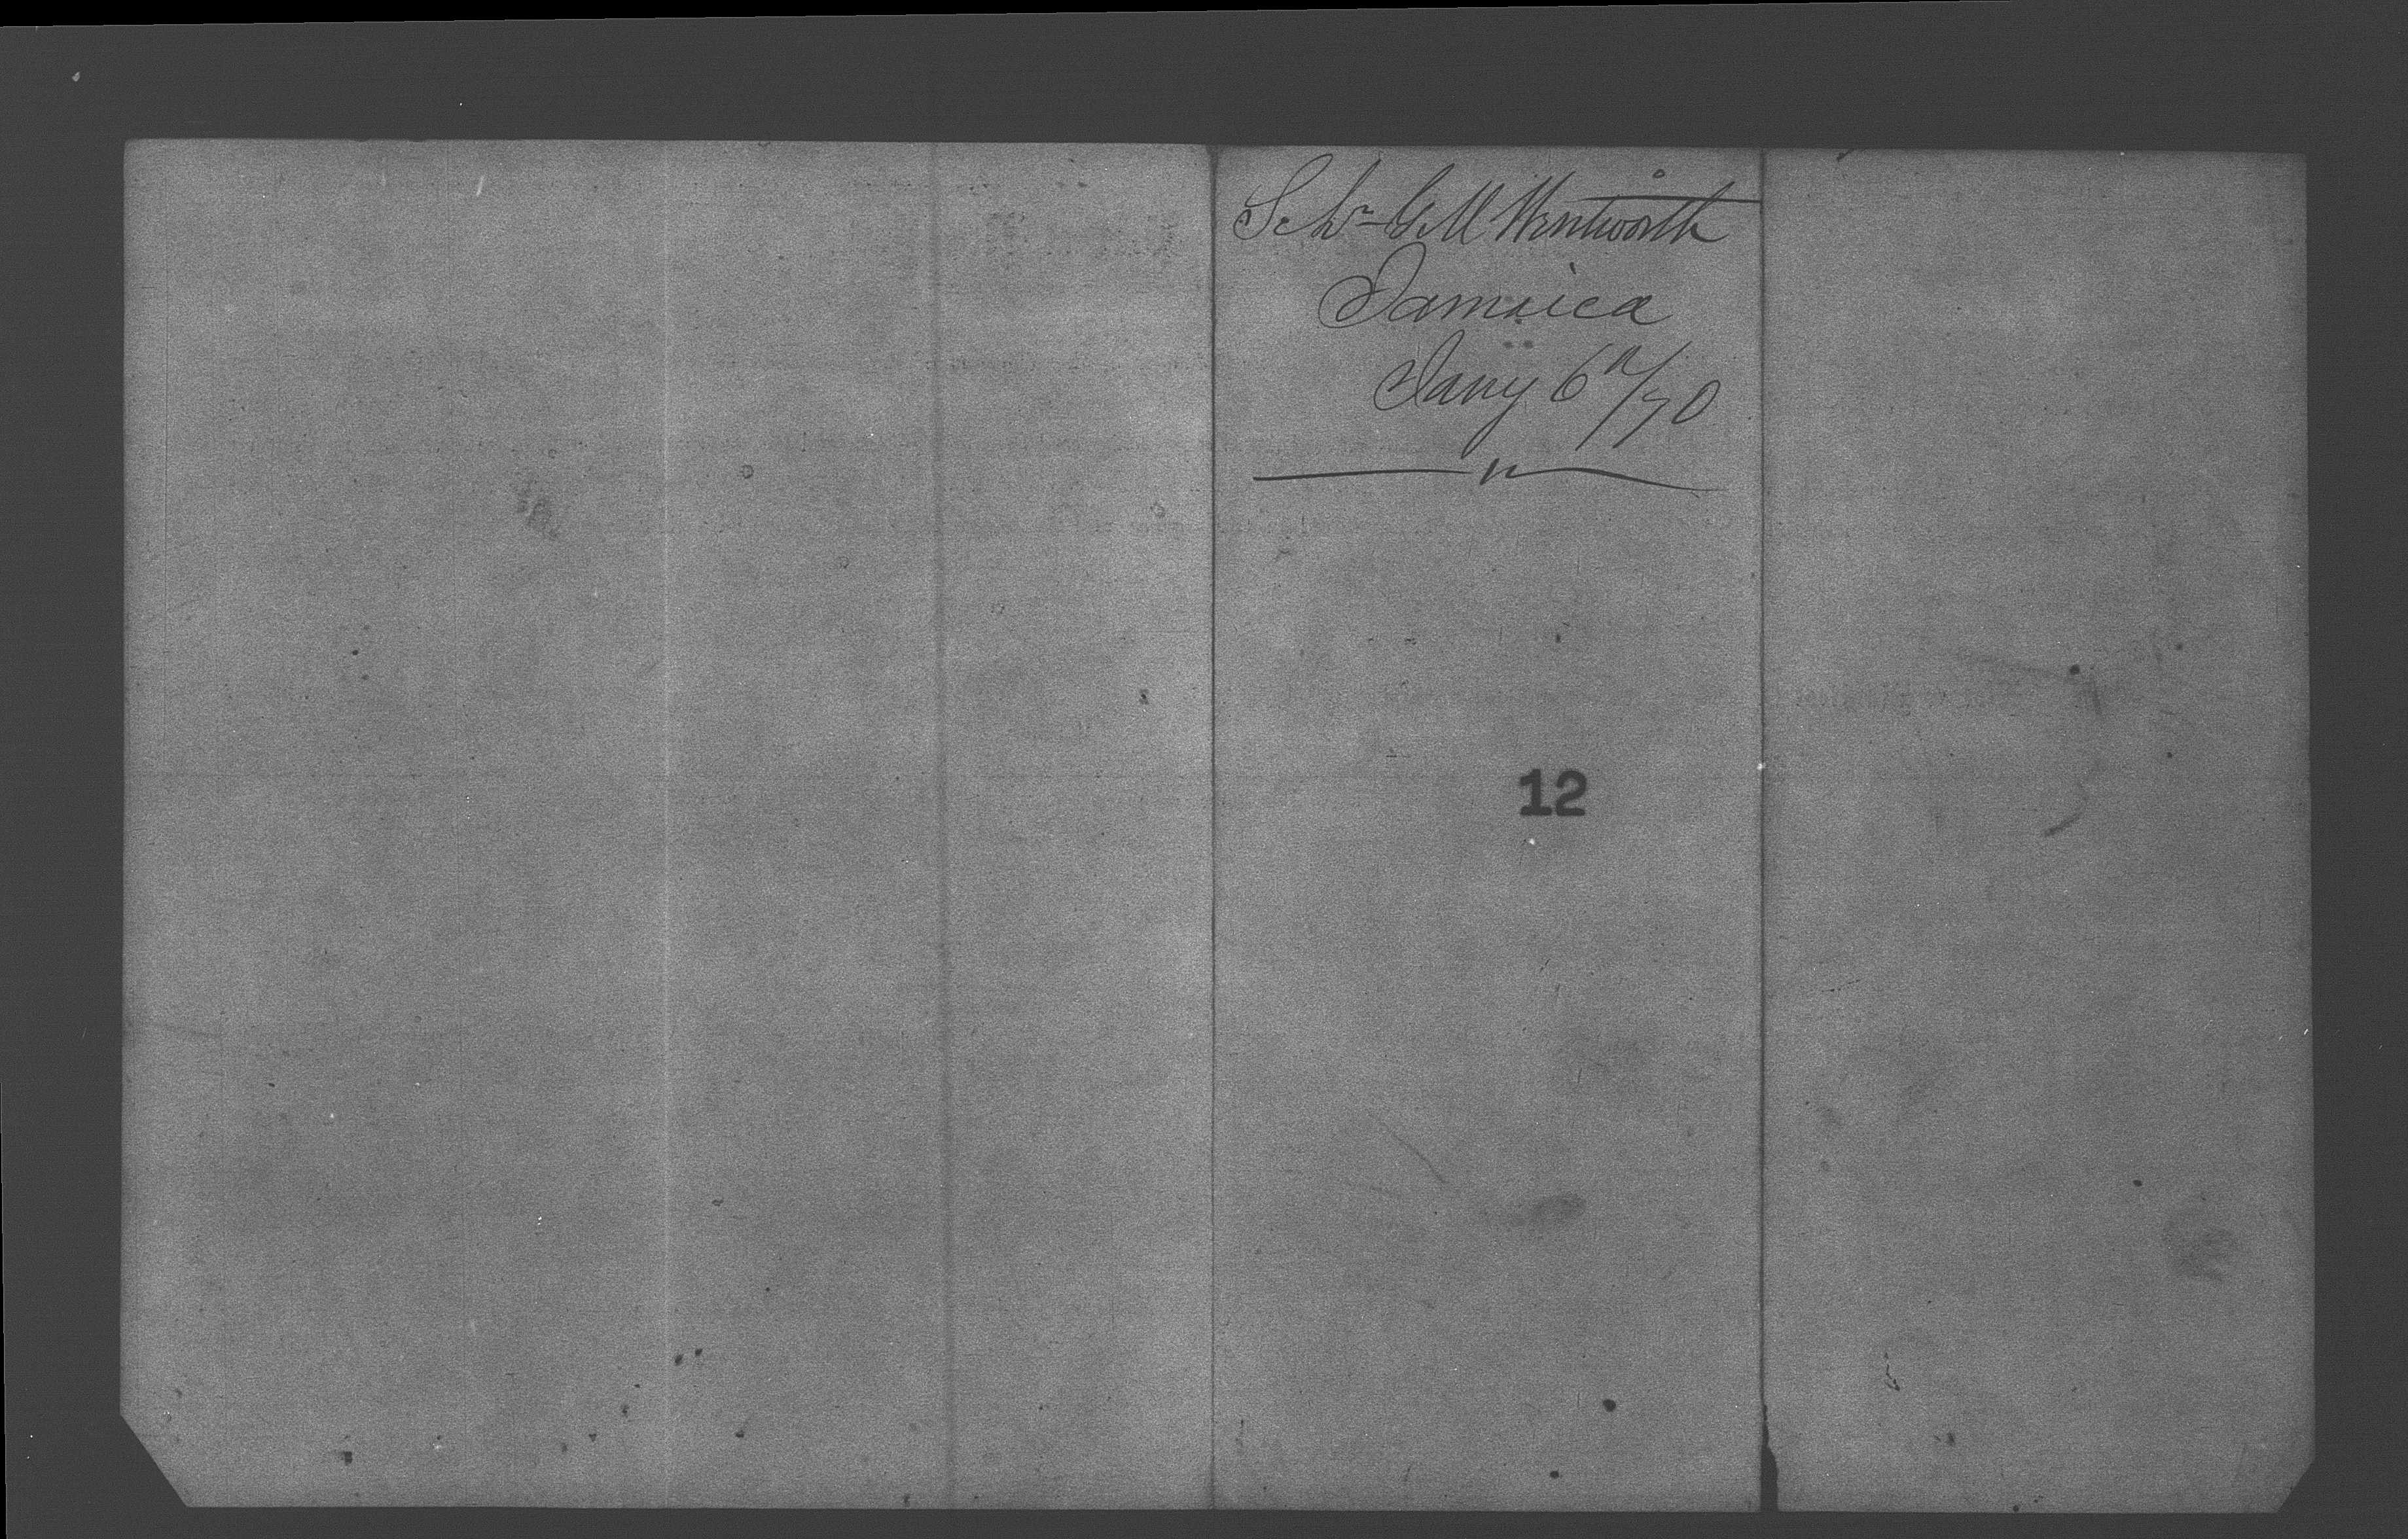 Schr G M Wentworth
Jamaica
Jany 6th/70
12